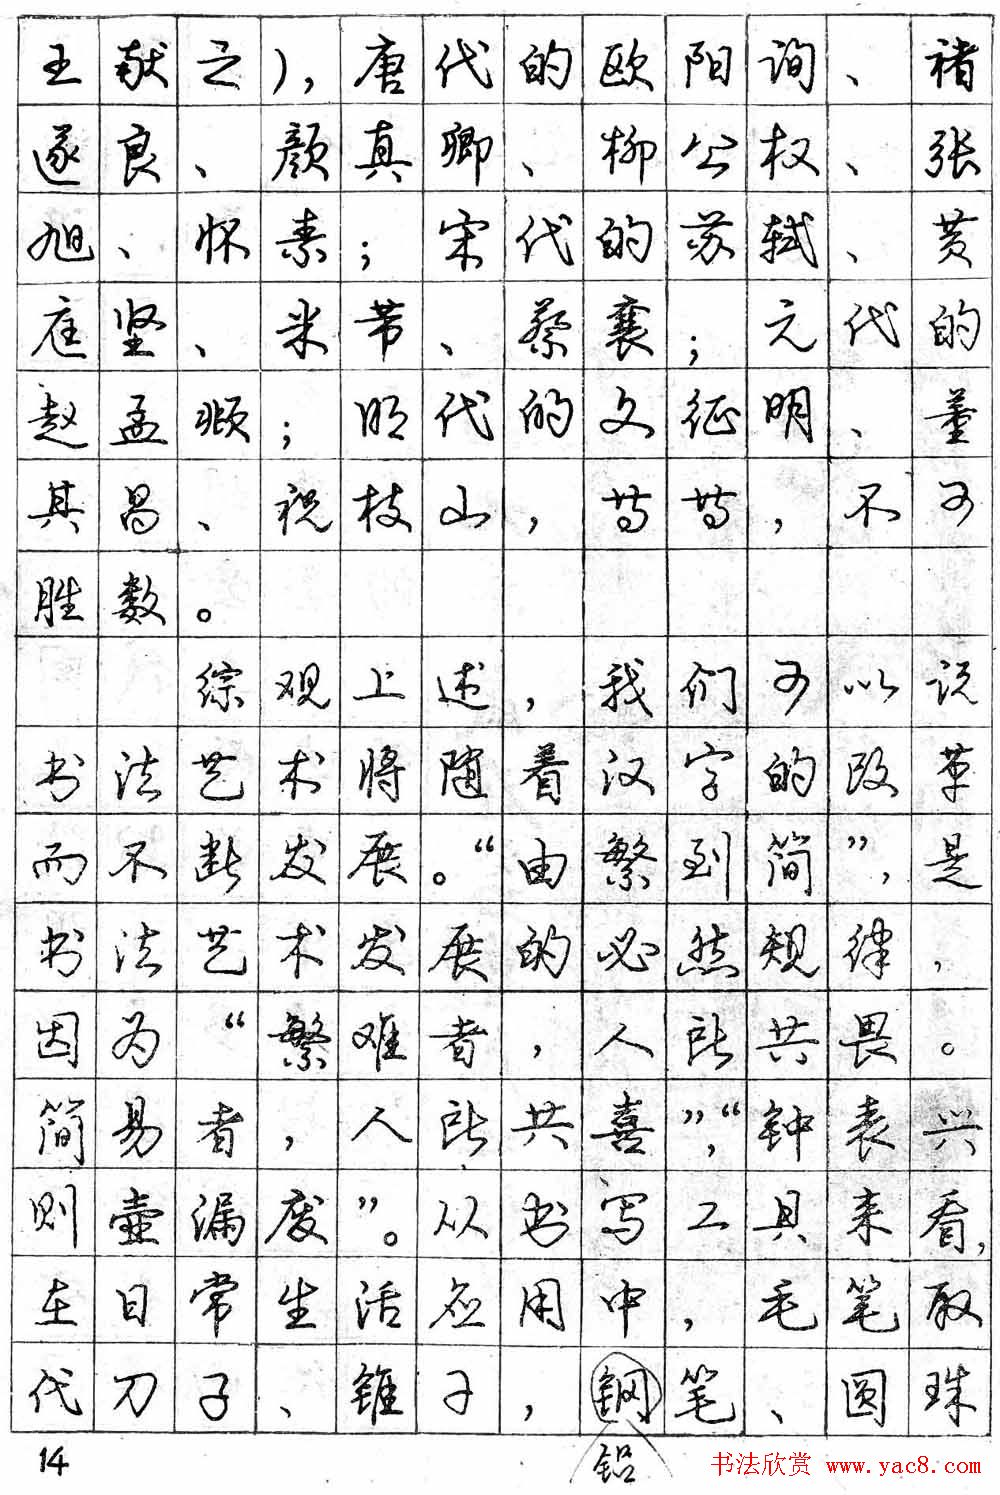 王献之），唐代的欧阳询、褚
遂良、颜真卿、柳公权、张
旭、怀素；宋代的苏轼、黄
庭坚、米芾、蔡襄；元代的
赵孟頫；明代的文征明、董
其昌、祝枝山，等等，不可
胜数。
综观上述，我们可以说
书法艺术将随着汉字的改革
而不断发展。“由繁到简”，是
书法艺术发展的必然规律，
因为“繁难者，人所共畏。
简易者，人所共喜”，“钟表兴
则壶漏废”。从书写工具来看，
在日常生活应用中，毛笔取
代刀子、锥子，钢笔、圆珠
铅
14
书法欣赏 www.yac8.com